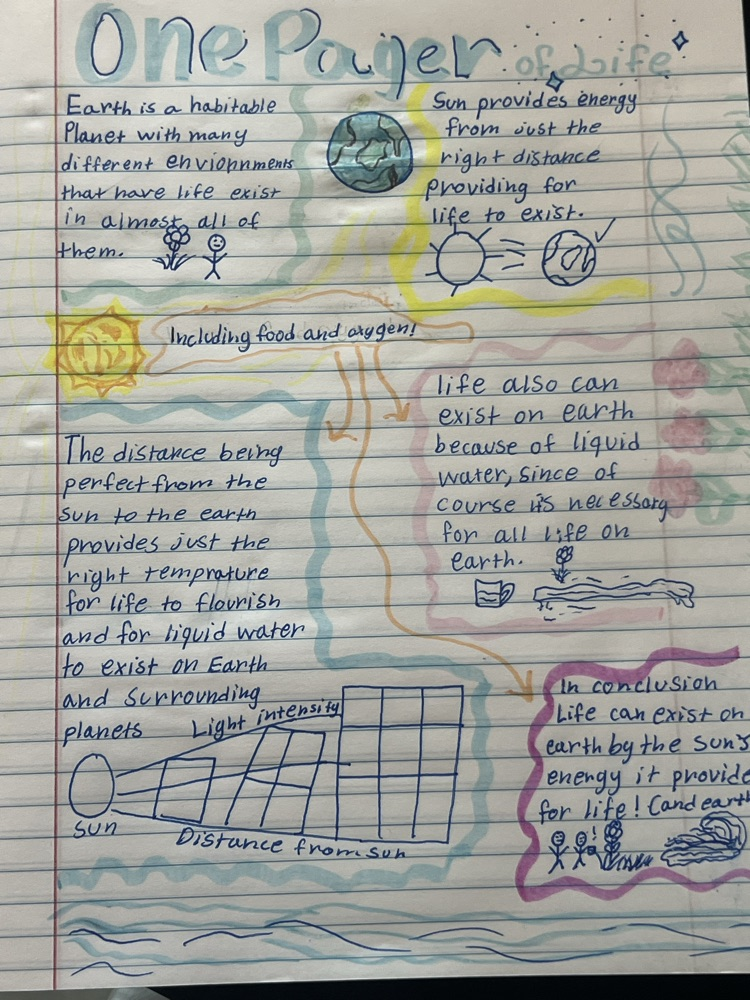 One Pager
of Life
Earth is a habitable
Planet with many
different enviopnments
that have life exist
in almost all of
them.
Sun provides energy
from just the
right distance
providing for
life to exist.
Including food and oxygen!
life also can
exist on earth
because of liquid
water, since of
course it's necessary
for all life on
earth.
The distance being
perfect from the
sun to the earth
provides just the
right temprature
for life to flourish
and for liquid water
to exist on Earth
and surrounding
planets
Light intensity
sun
Distance from sun
In conclusion
Life can exist on
earth by the sun's
energy it provide
for life! (and earth